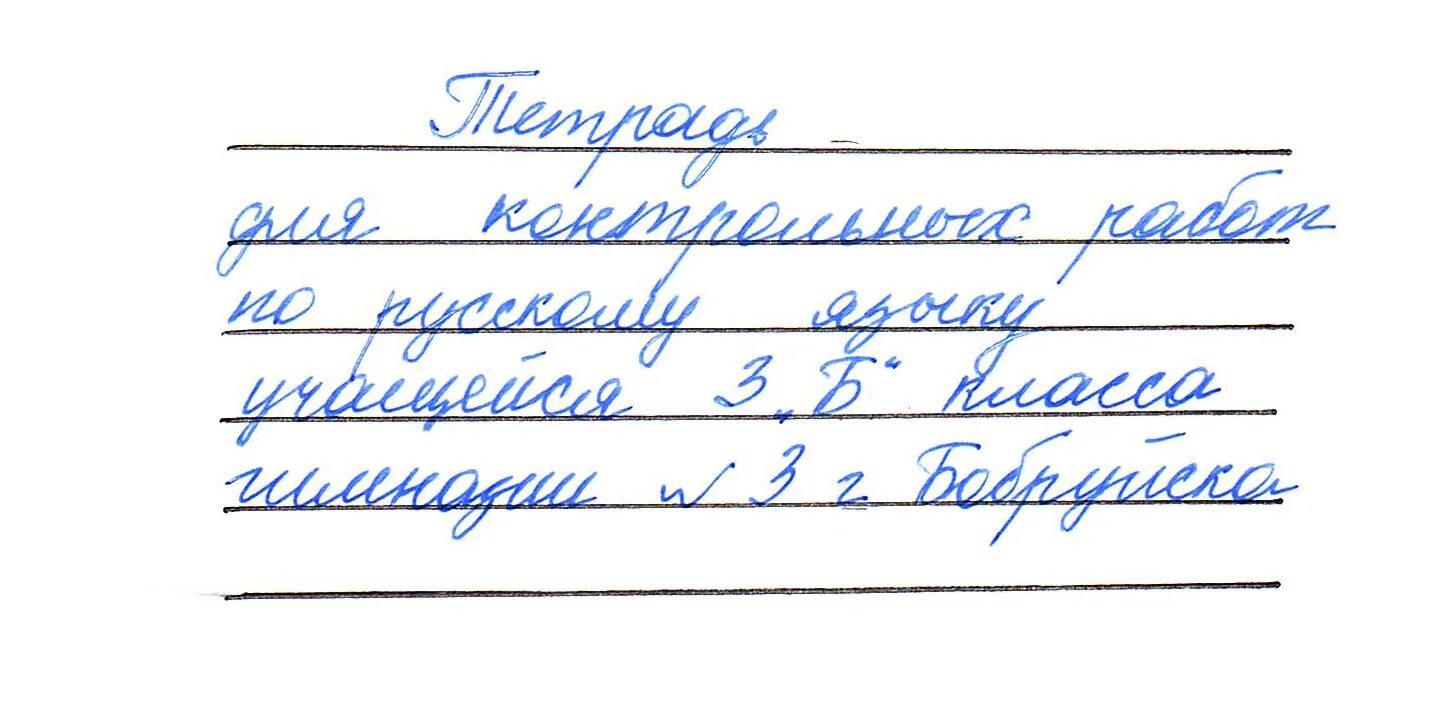 Тетрадь
для контрольных работ
по русскому языку
учащейся 3 „Б“ класса
гимназии № 3 г Бобруйска